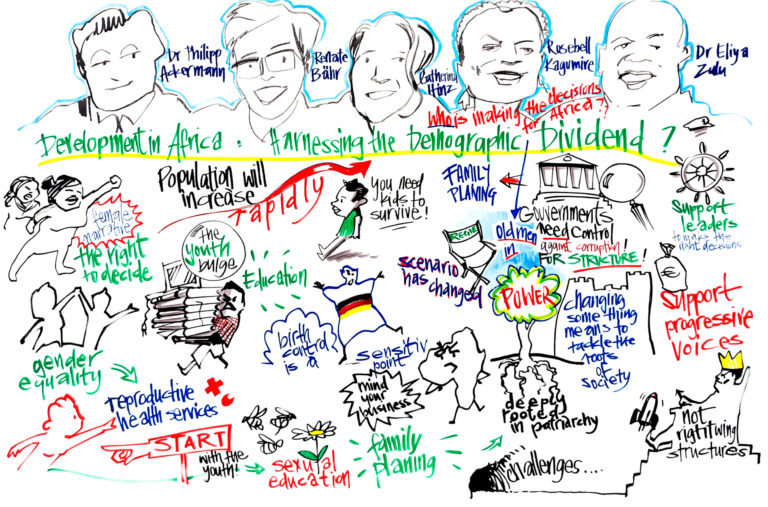 Dr Philipp
Ackermann
Renate
Bähr
Hinz
Rosebell
Kagumire
Dr Eliya
Zulu
Who is making the decisions
for Africa?
Development in Africa: Harnessing the Demographic Dividend?
female
narrative
the right
to decide
Population will
increase rapidly
you need
kids to
survive!
FAMILY
PLANING
Governments
need control
against corruption!
FOR STRUCTURE!
support
leaders
to make the
right decisions
the
youth
bulge
Education
scenario
has changed
old men
in
POWER
changing
something
means to
tackle the
roots
of
society
support
progressive
voices
gender
equality
birth
control
is a
sensitiv
point
mind
your
business
deeply
rooted
in patriarchy
not
rightwing
structures
reproductive
health services
START
with the
youth!
sexual
education
family
planing
challenges....